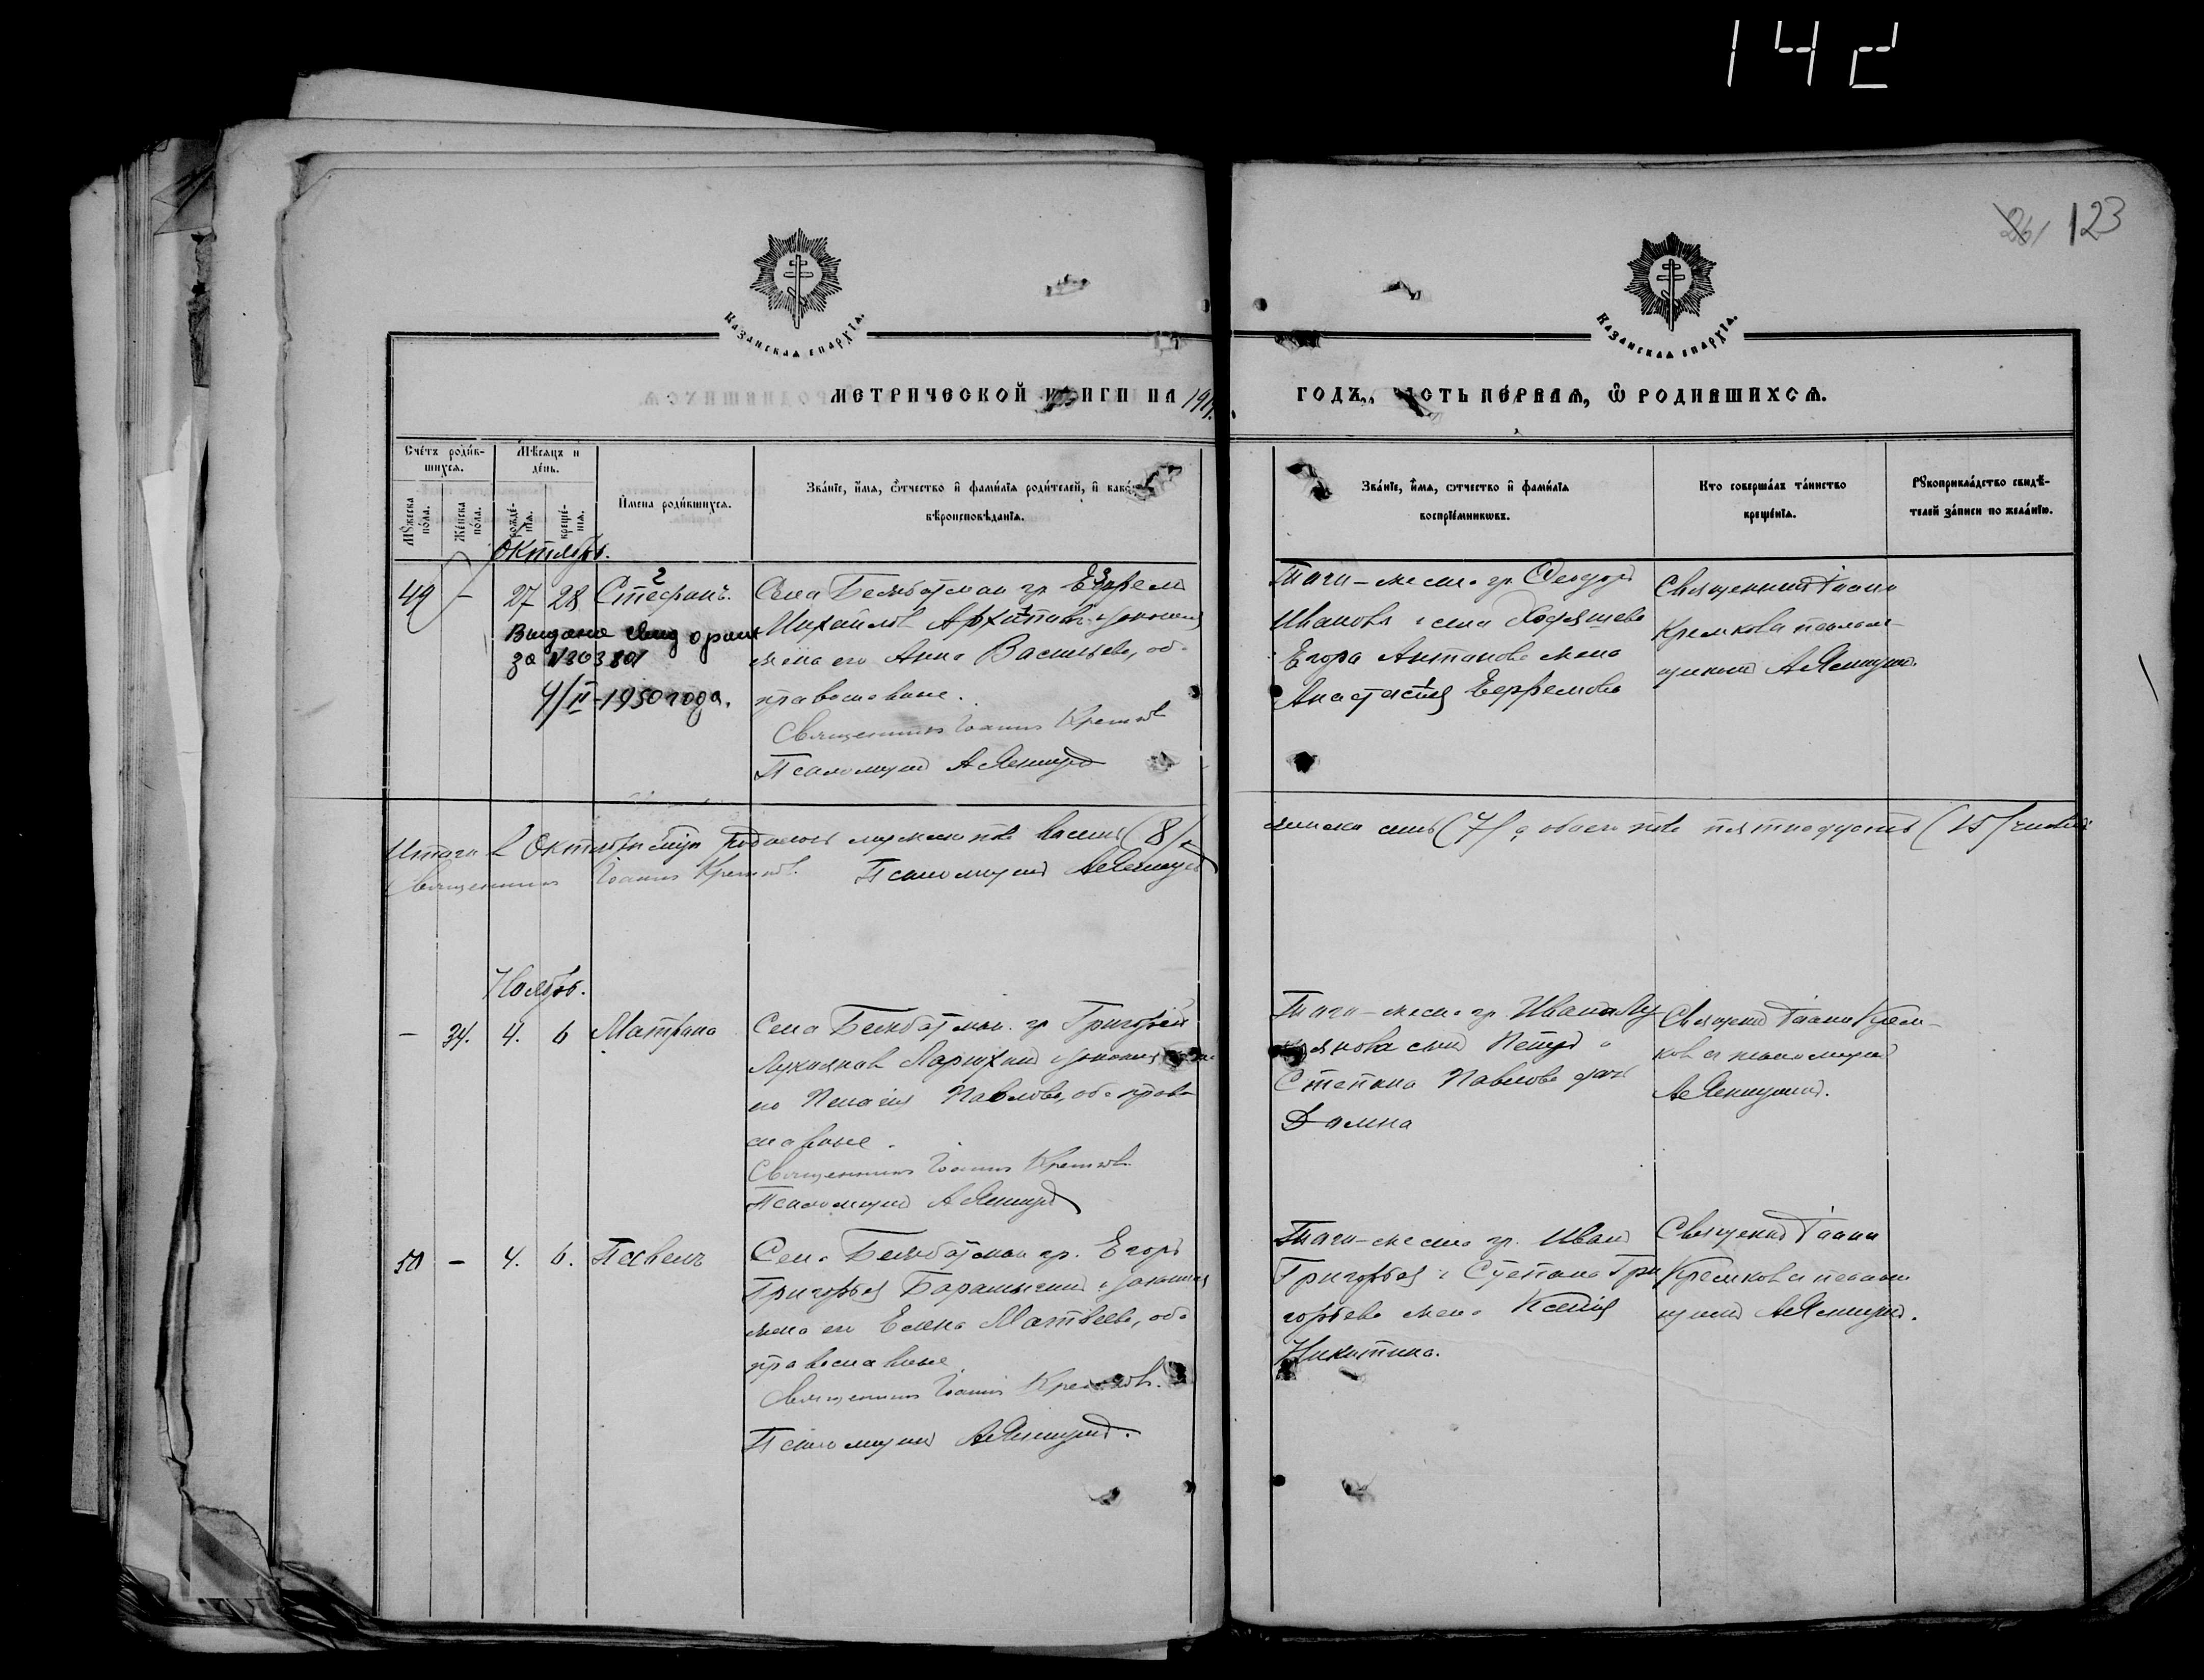 142
123
Казанская епархїа.
Казанская епархїа.
МЕТРИЧЕСКОЙ КНИГИ НА 191
ГОДЪ, ЧАСТЬ ПЕРВАЯ, Ѡ РОДИВШИХСЯ.
Счетъ родив-
шихся.
Мѣсяцъ и
день.
Мужеска
пола.
Женска
пола.
рожде-
нїя.
креще-
нїя.
Имена родившихся.
Званїе, имя, отчество и фамилїя родителей, и како
вѣроисповѣданїя.
Званїе, имя, отчество и фамилїя
воспрїемниковъ.
Кто совершалъ таинство
крещенїя.
Рукоприкладство свидѣ-
телей записи по желанїю.
Октябрь.
49 - 27 28 Стефанъ.
Выдано свид о рожд
за № 803801
4/II-1950 года.
Села гр. Ефрем
Михайлов Архипов и законная
жена его Анна Васильева, оба
православные.
Священникъ Іоаннъ Кремков
Псаломщик
Того-же села гр. Феодор
Иванов и села
Егора Антонова жена
Анастасия Ефремова
Священник Іоанн
Кремков и псалом-
щик
Итого в Октябре родилось мужеска пола восемь (8)
женска семь (7) а обоего пола пятнадцать (15) человек
Священник Іоанн Кремков. Псаломщик
Ноябрь.
- 34. 4. 6 Матрона
Села гр Григорий
Лукиянов и законная
его Пелагия Павлова, оба право
славные.
Священникъ Іоаннъ Кремков
Псаломщик
Того-же села гр. Ивана Лу
киянова сын Петр и
Степана Павлова дочь
Домна
Священник Іоанн Крем-
ков и псаломщик
50 - 4. 6. Павелъ
Села гр. Егор
Григорьев и законная
жена его Елена Матвеева, оба
православные.
Священник Іоанн Кремков.
Псаломщик
Того-же села гр. Иван
Григорьев и Степана Гри
горьева жена Ксения
Никитина.
Священник Іоанн
Кремков и псалом
щик